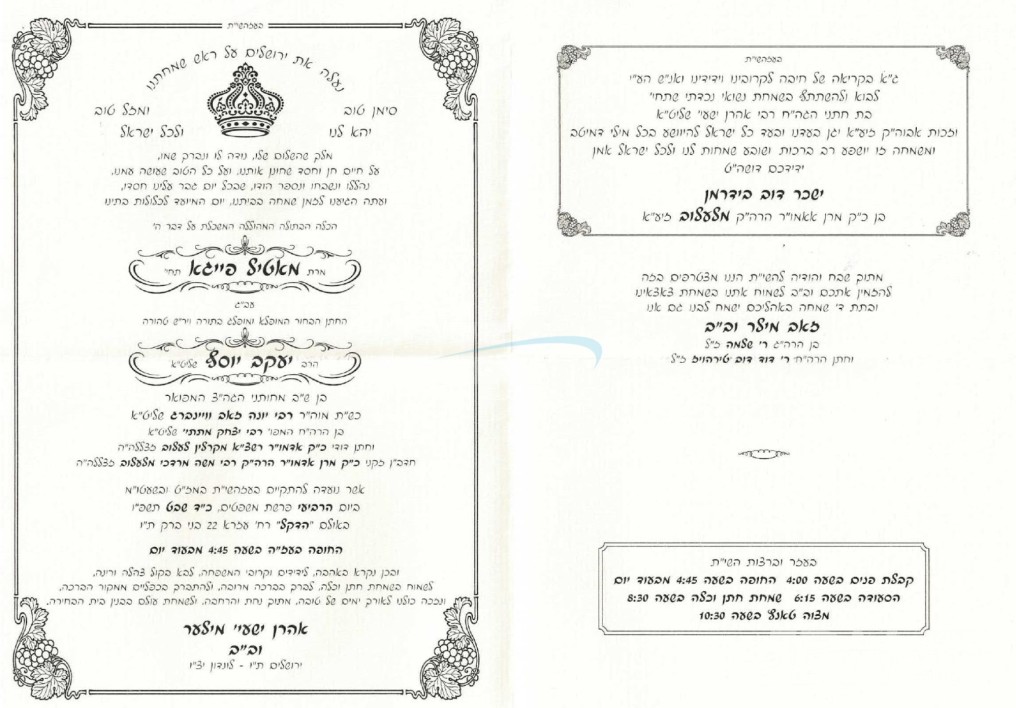 בעזהשי"ת
נעלה את ירושלים על ראש שמחתנו
סימן טוב ומזל טוב
יהא לנו ולכל ישראל
מלך שהשלום שלו, נודה לו ונברך שמו,
על חיים חן וחסד שחונן אותנו, ועל כל הטוב שעושה עמנו,
נהללו ונשבחו ונספר הודו, שבכל יום גבר עלינו חסדו,
ועתה הגיענו לזמן שמחה בביתנו, יום המיועד לכלולות בתינו
הכלה הבתולה המהוללה המשכלת על דבר ה'
מרת מאטיל פייגא תחי'
עב"ג
החתן הבחור המופלא ומופלג בתורה ויר"ש טהורה
הרב יעקב יוסף שליט"א
בן ש"ב מחותני הגה"צ המפואר
כש"ת מוה"ר רבי יונה זאב וויינברג שליט"א
בן הרה"ח המפו' רבי יצחק מתתי' שליט"א
וחתן דודי כ"ק אדמו"ר רשצ"א מקרלין לעלוב זצללה"ה
חדב"ן זקני כ"ק מרן אדמו"ר הרה"ק רבי משה מרדכי מלעלוב זצללה"ה
אשר נועדה להתקיים בעזהשי"ת במז"ט ובשעטו"מ
ביום הרביעי פרשת משפטים, כ"ד שבט תשפ"ו
באולם "הדקל" רח' עזרא 22 בני ברק ת"ו
החופה בעזה"י בשעה 4:45 מבעוד יום
ובכן נקרא באהבה, לידידים וקרובי המשפחה, לבא בקול צהלה ורינה,
לשמוח בשמחת חתן וכלה, לברך בברכה מרובה, ולהתברך בכפליים ממקור הברכה,
ונזכה כולנו לאורך ימים של טובה, מתוך נחת והרחבה, ולשמחת עולם בבנין בית הבחירה.
אהרן ישעי' מילער
וב"ב
ירושלים ת"ו - לונדון יצ"ו
בעזהשי"ת
ג"א בקריאה של חיבה לקרובינו וידידינו ואנ"ש הע"י
לבוא ולהשתתף בשמחת נשואי נכדתי שתחי'
בת חתני הגה"ח רבי אהרן ישעי' שליט"א
וזכות אבוה"ק זיע"א יגן בעדנו ובעד כל ישראל להיוושע בכל מילי דמיטב
ומשמחה זו יושפע רב ברכות ושובע שמחות לנו ולכל ישראל אמן
ידידכם דושה"ט
ישכר דוב בידרמן
בן כ"ק מרן אאמו"ר הרה"ק מלעלוב זיע"א
מתוך שבח והודיה להשי"ת הננו מצטרפים בזה
להזמין אתכם וב"ב לשמוח אתנו בשמחת צאצאינו
ובתת ד' שמחה באהליכם ישמח לבנו גם אנו
זאב מילר וב"ב
בן הרה"ג ר' שלמה ז"ל
וחתן הרה"ח ר' דוד דוב טירהויז ז"ל
בעזר וברצות השי"ת
קבלת פנים בשעה 4:00 החופה בשעה 4:45 מבעוד יום
הסעודה בשעה 6:15 שמחת חתן וכלה בשעה 8:30
מצוה טאנץ בשעה 10:30